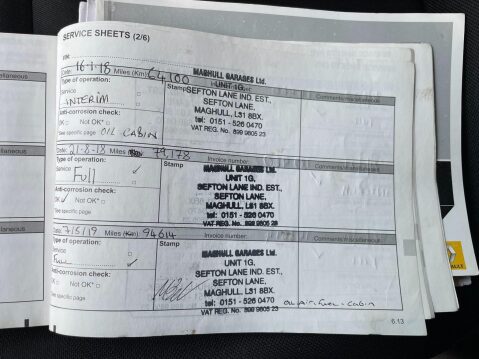 SERVICE SHEETS (2/6)
VIN:
Date: 16-1-18 Miles (Km) 64100
Type of operation:
Service
INTERIM
Anti-corrosion check:
OK Not OK*
See specific page OIL CABIN
Stamp
MAGHULL GARAGES Ltd.
UNIT 1G,
SEFTON LANE IND. EST.,
SEFTON LANE,
MAGHULL, L31 8BX.
tel: 0151 - 526 0470
VAT REG. No. 899 9805 23
Comments/miscellaneous
Date: 21-8-18 Miles 79178 Invoice number:
Type of operation:
Service
Full
Anti-corrosion check:
OK Not OK*
See specific page
MAGHULL GARAGES Ltd.
UNIT 1G,
SEFTON LANE IND. EST.,
SEFTON LANE,
MAGHULL, L31 8BX.
tel: 0151 - 526 0470
VAT REG. No. 899 9805 23
Comments/miscellaneous
Date: 7/5/19 Miles (Km) 94614 Invoice number:
Type of operation:
Service
Full
Anti-corrosion check:
OK Not OK*
See specific page
Stamp
MAGHULL GARAGES Ltd.
UNIT 1G,
SEFTON LANE IND. EST.,
SEFTON LANE,
MAGHULL, L31 8BX.
tel: 0151 - 526 0470
VAT REG. No. 899 9805 23
Comments/miscellaneous
Cabin
6.13